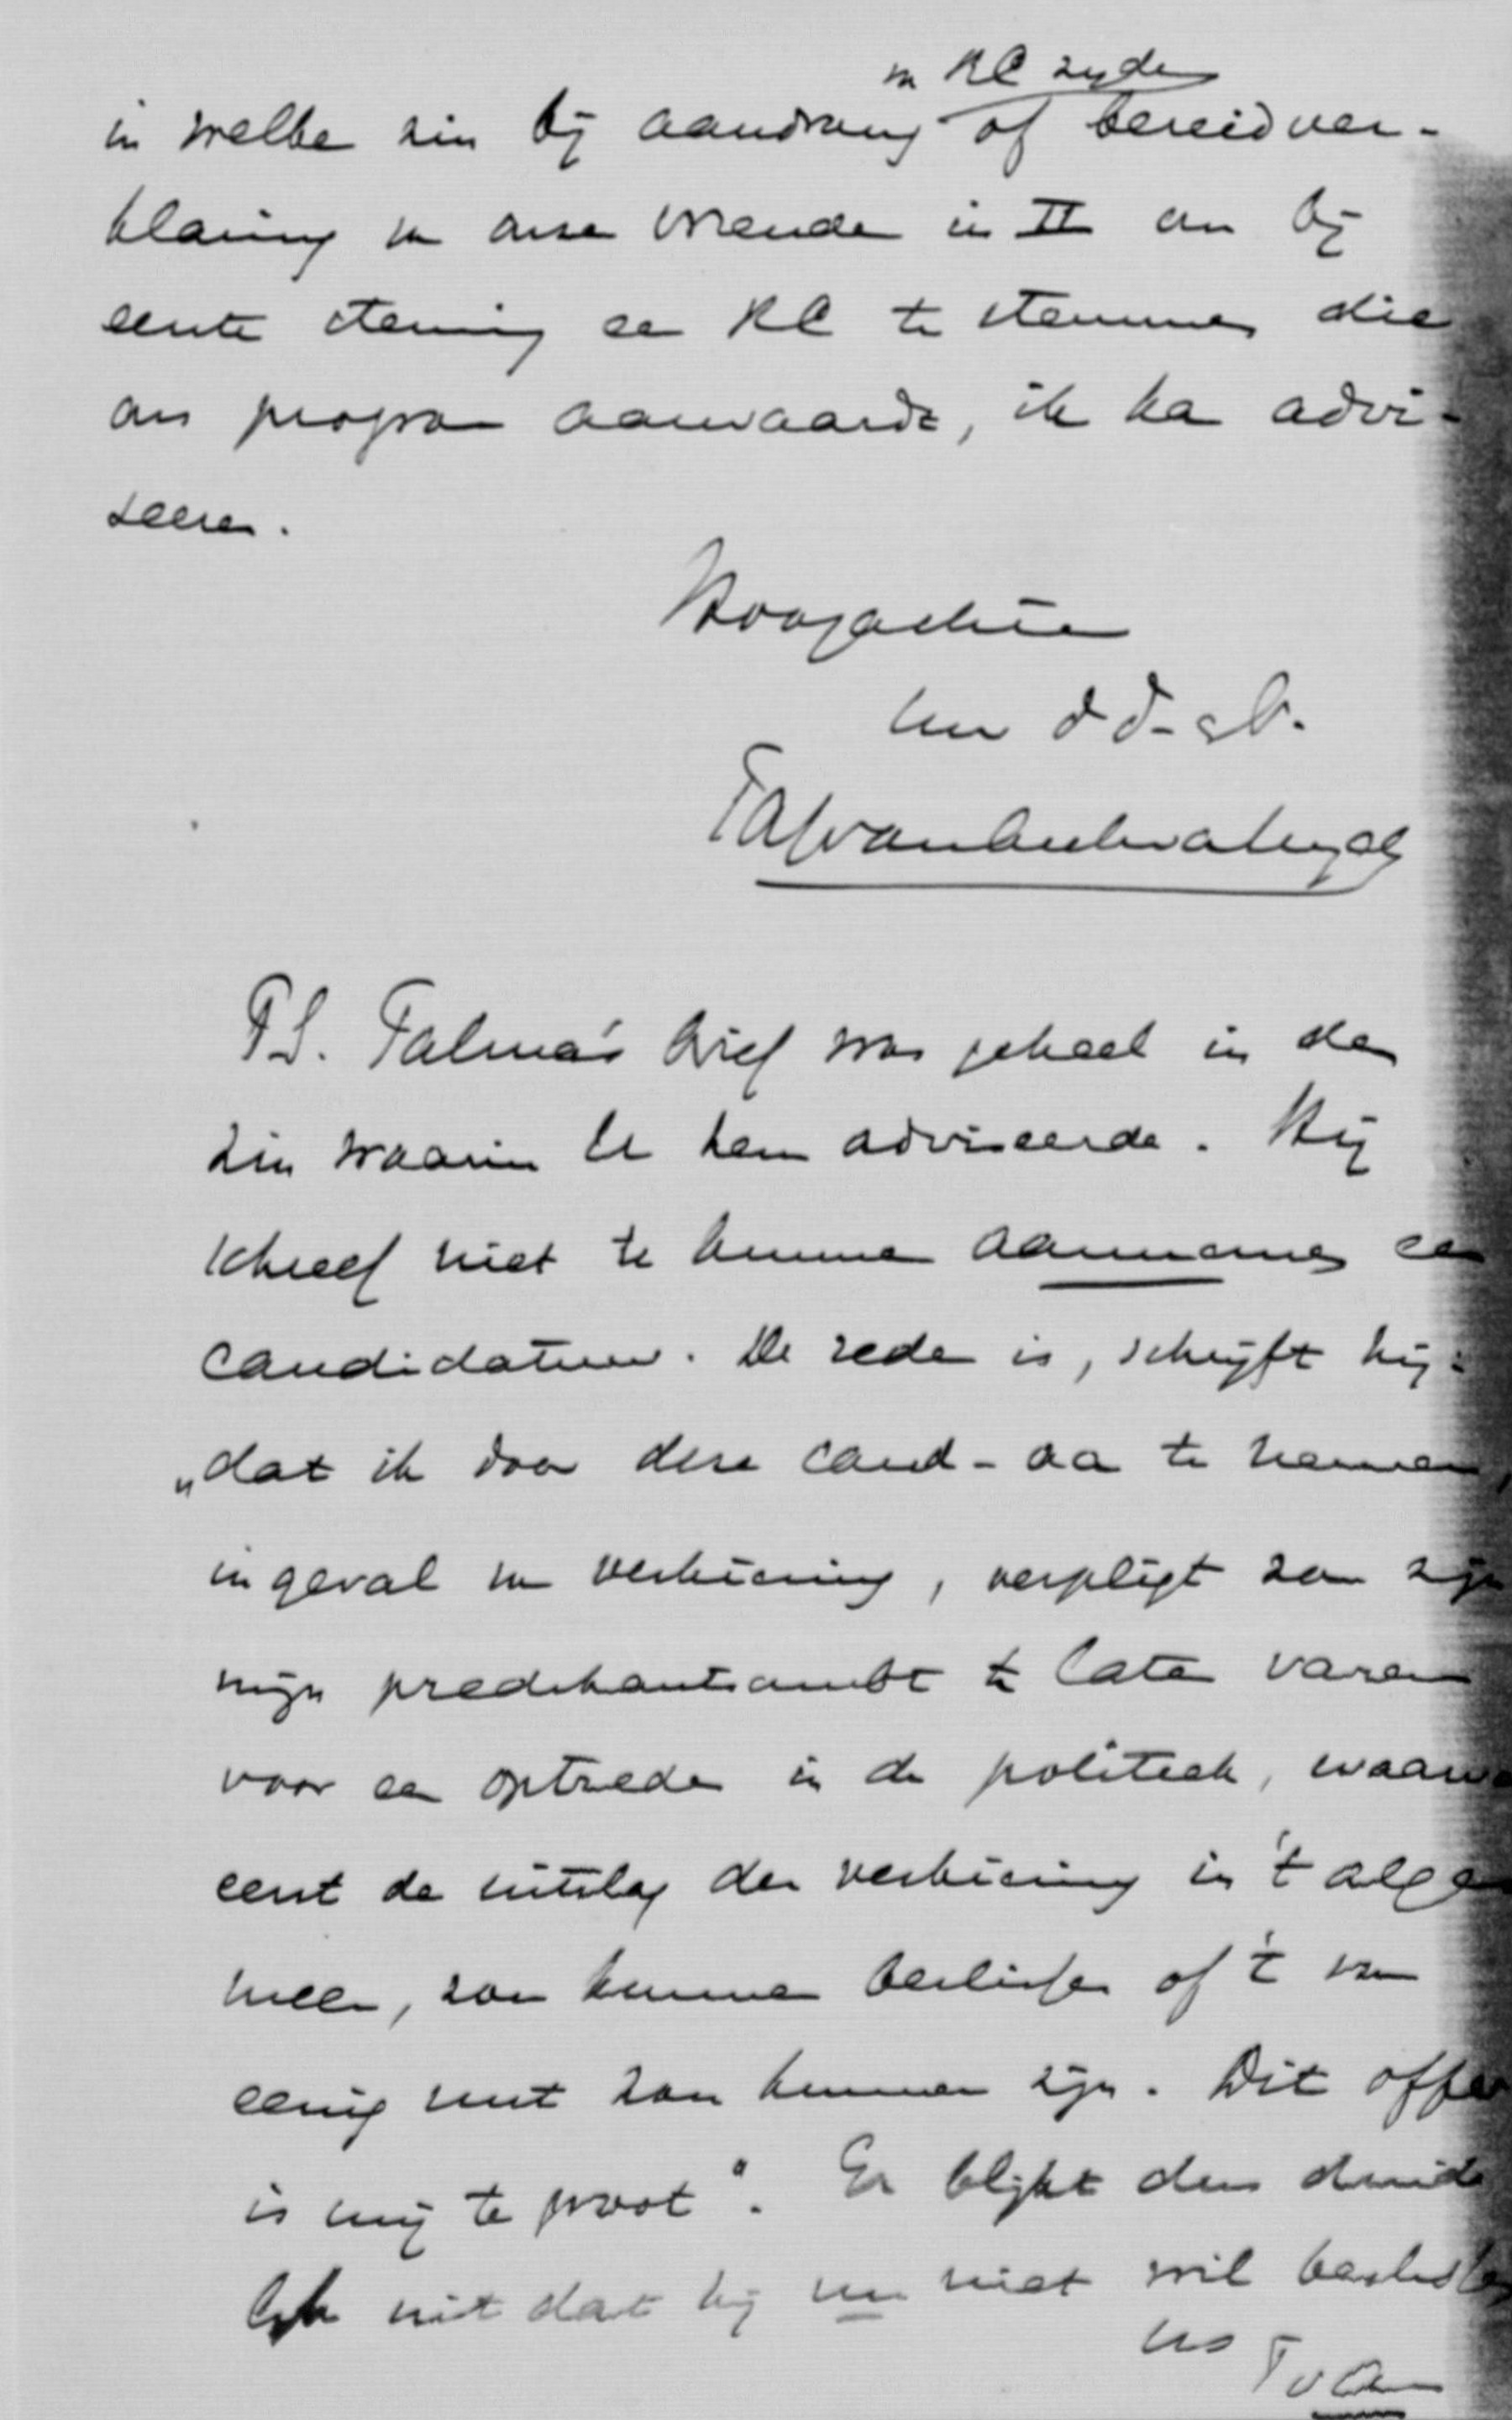 v RC zyde
in welke zin bij aandrang of bereidver-
klaring v onze vriende in II om bij
eerste steming ee RC te stemmen die
ons program aanvaardt, ik ka advi-
seeren.
Hoogachtend
Uw d d.
TAJvanAschvanWyck
PS. Talma's brief was geheel in den
zin waarin U hem adviseerde. Hij
schreef niet te kunnen aannemen een
candidatuur. De rede is, schryft hij:
„dat ik door deze cand- aa te nemen,
ingeval v verkiezing, verpligt zou zijn
mijn predikantsambt te laten varen
voor een optreden in de politiek, waarv
eerst de uitslag der verkiezing in 't alge
meen, zou kunnen beslissen of 't van
eenig nut zou kunnen zijn. Dit offer
is mij te groot". Er blijkt dus duide
lijk uit dat hij nu niet wil beslis
tts
TvA